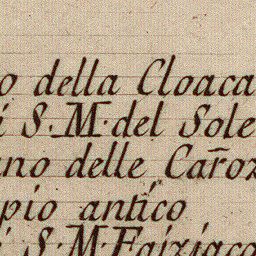 o della Cloaca
i S. M. del Sole
ano delle Caroz
pio antico
i S. M.